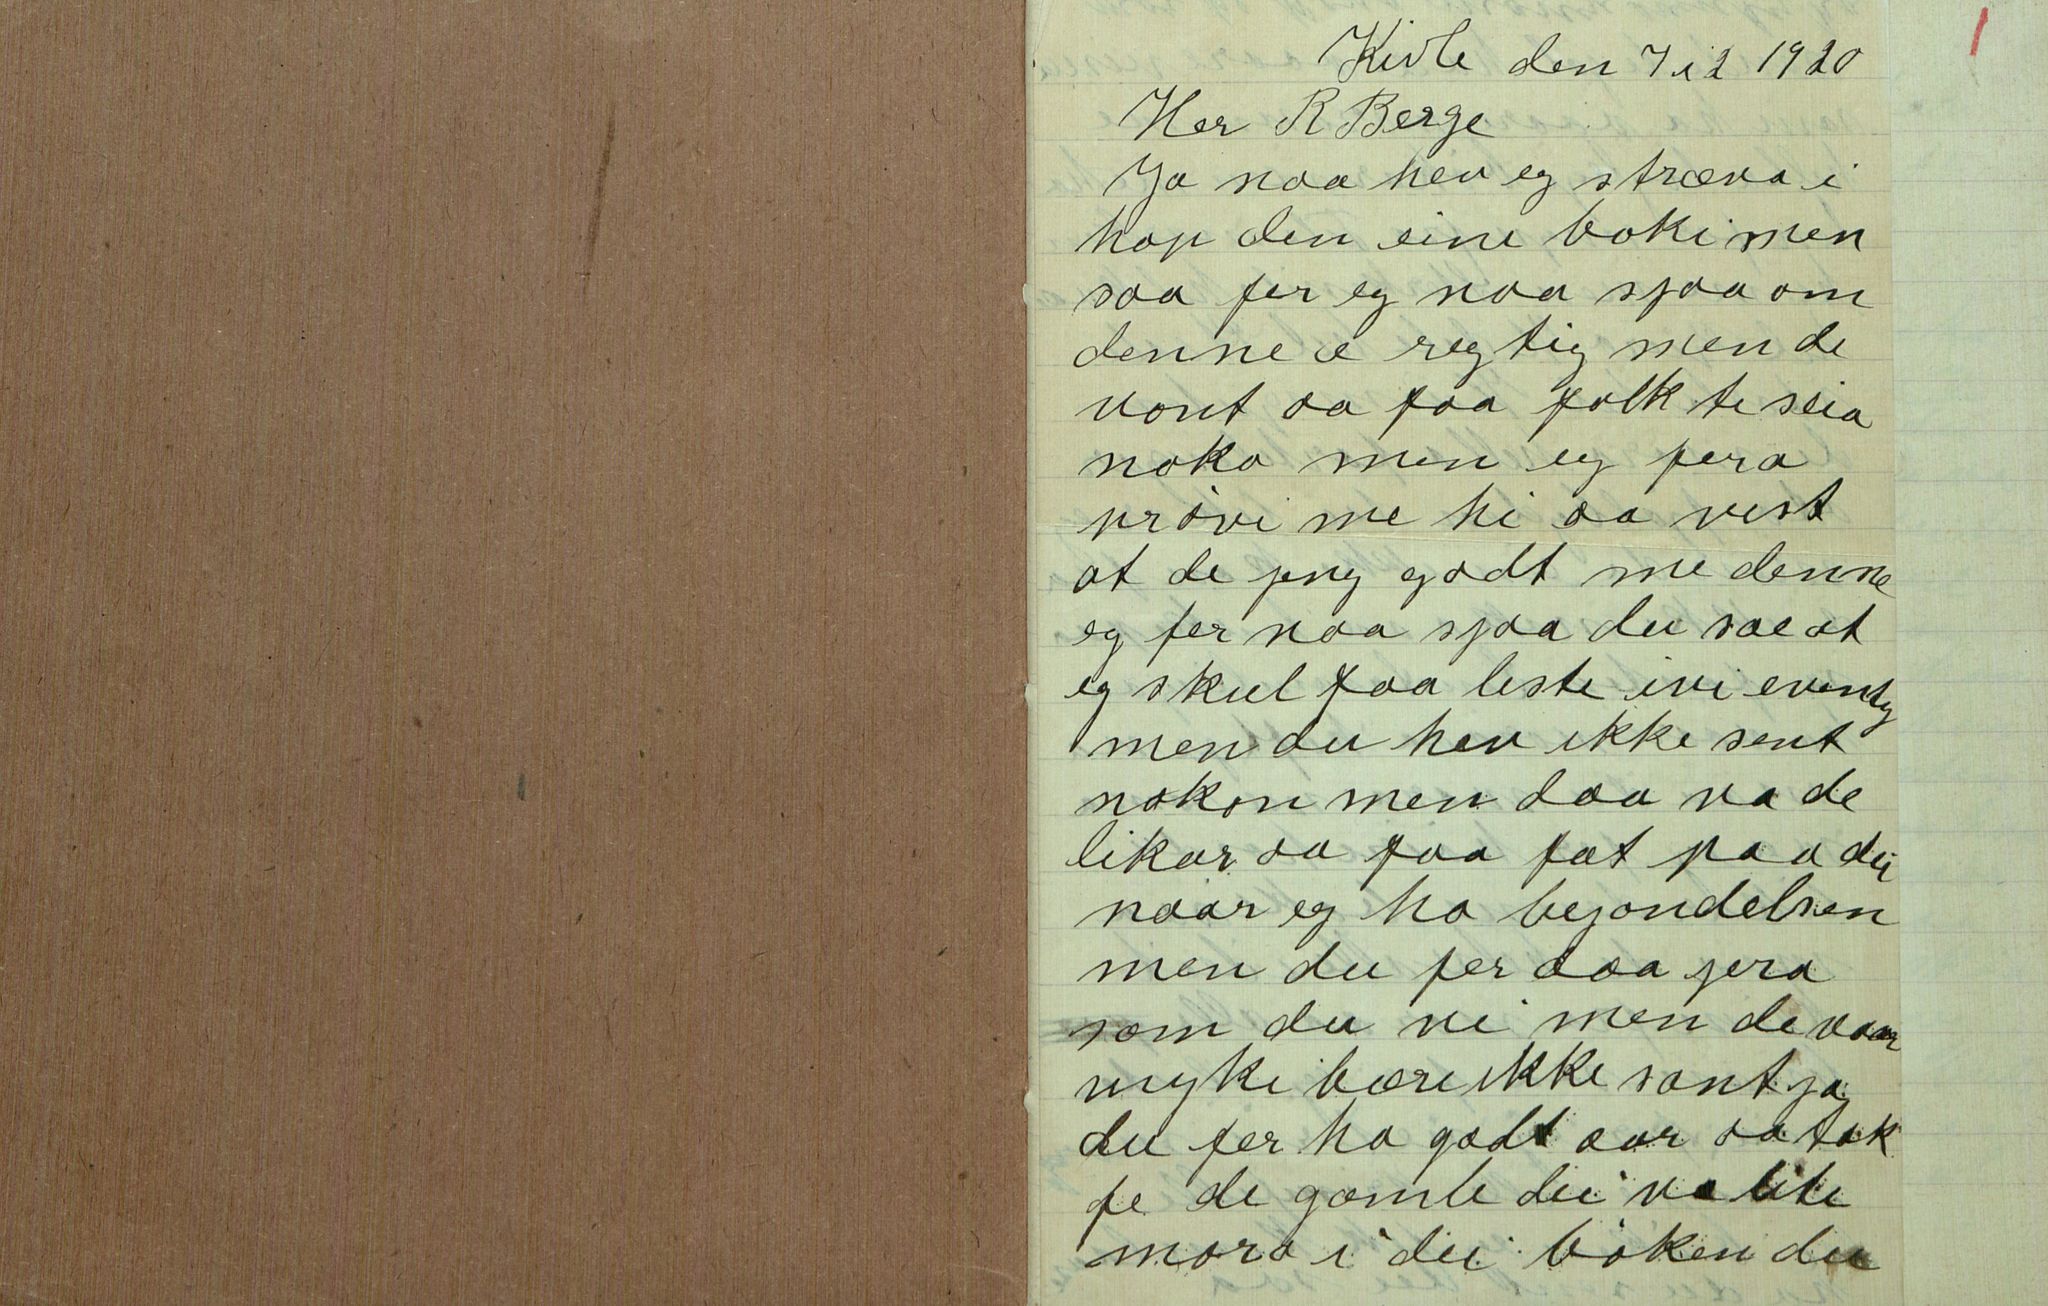 1
Kivle den 7 i 2 1920
Her R Berge
Ja naa hev eg stræva i
hop den eine boki men
saa fær eg naa sjaa om
denne æ regtig men de
vont aa faa folk te seia
noko men eg fera
prøvi me hi aa vist
at de jeng godt me denne
eg fer naa sjaa du sae at
eg skul faa leste ivi eventy
men du hev ikke sent
nokon men daa va de
likar aa faa fat paa dei
naar eg ha bejondelsen
men du fer daa jera
som du vi men de vaar
myki bære ikke sant ja
du fer ha godt aar aa tak
fe de gamle dei va lite
moro i dei bøken du